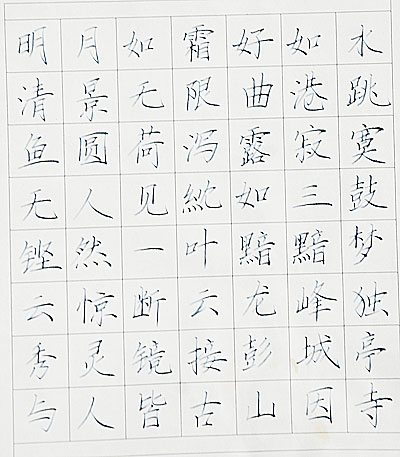 明月如霜好如水
清景无限曲港跳
鱼圆荷泻露寂寞
无人见紞如三鼓
铿然一叶黯黯梦
云惊断云龙峰独
秀灵镜接彭城亭
与人皆古山因寺